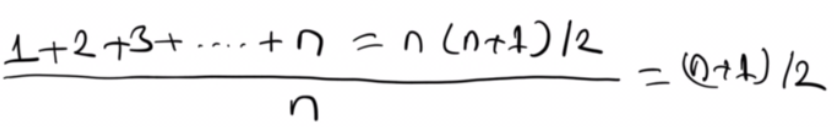 1+2+3+.....+n = n(n+1)/2
n
= (n+1)/2